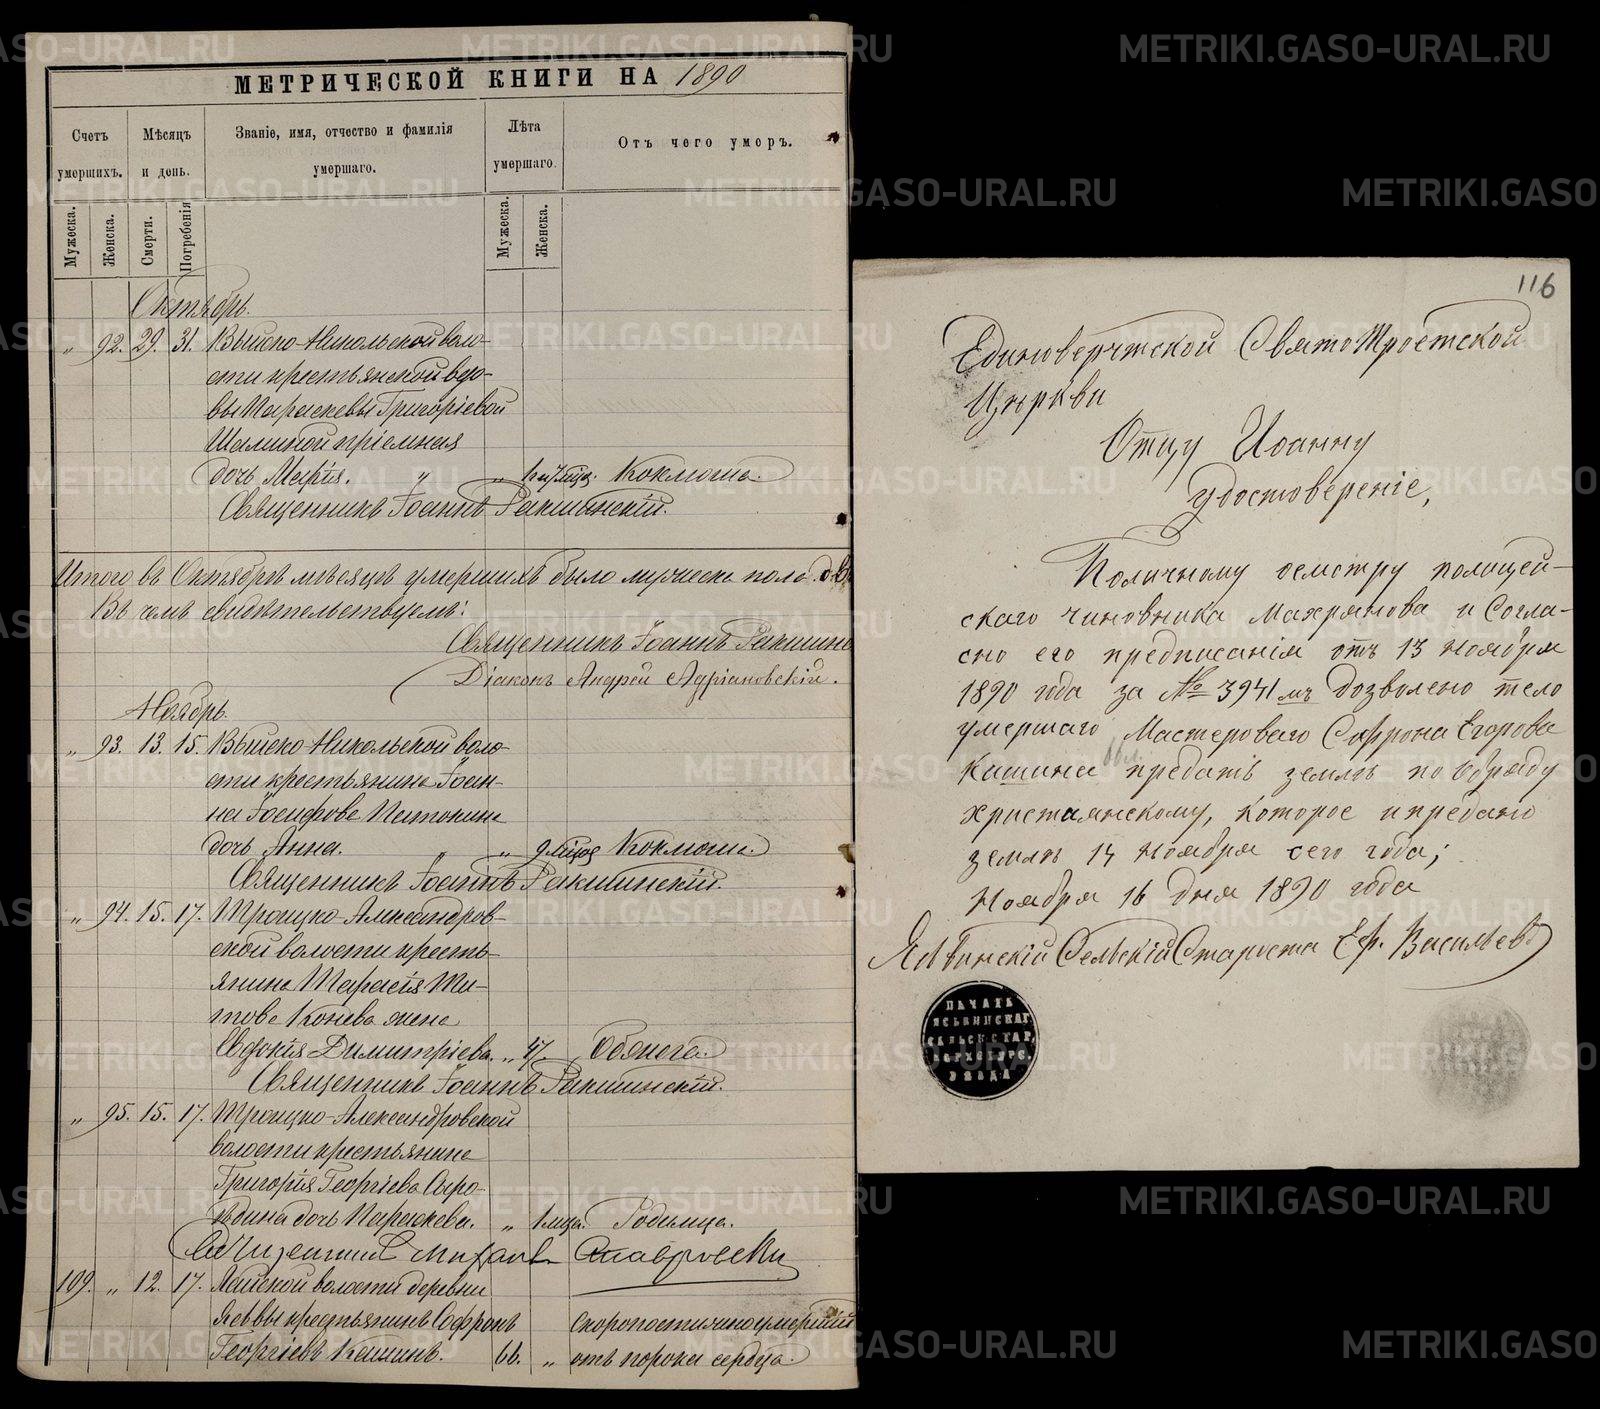 МЕТРИЧЕСКОЙ КНИГИ НА 1890
Счетъ умершихъ.
Мѣсяцъ и день.
Званіе, имя, отчество и фамилія умершаго.
Лѣта умершаго.
Отъ чего умеръ.
Мужеска.
Женска.
Смерти.
Погребенія
Мужеска.
Женска.
Октябрь.
" 92. 29. 31. Выйско-Никольской воло-
сти крестьянской вдо-
вы Параскевы Григоріевой
Шалиной пріемная
дочь Марія. " " Коклюша.
Священникъ Іоаннъ Ракшинскій.
Итого въ Октябрѣ мѣсяцѣ умершихъ было мужеска пола
Въ чемъ свидѣтельствуемъ:
Священникъ Іоаннъ Ракшинс
Діаконъ Андрей Адріановскій.
Ноябрь.
" 93. 13. 15. Выйско-Никольской воло-
сти крестьянина Іоан-
на Іосифова
дочь Анна. " " 9 мѣсяц Коклюша.
Священникъ Іоаннъ Ракшинскій.
" 94. 15. 17. Троицко-Александров-
ской волости кресть-
янина Тарасія Ти-
това Конева жена
Евдокія Димитріева. " 47. Ожога.
Священникъ Іоаннъ Ракшинскій.
" 95. 15. 17. Троицко-Александровской
волости крестьянина
Григорія Георгіева Сыро-
ѣдина дочь Параскева. " 1 мца. Родимца.
Священник Михаил Ставровски
109. " 12. 17. Яйвской волости деревни
Яйвы крестьянинъ Софронъ Скоропостижно умершій
Георгіевъ Кашинъ. 66. " отъ порока сердца.
116
Единоверчтской СвятоТроетской
Цѣркви
Отцу Иоанну
Удостовереніе,
Поличному осмотру полицей-
скаго чиновника Махрянова и Согла-
сно его предписанія отъ 13 ноября
1890 года за № 3941мъ дозволено тело
умершаго Мастероваго Софрона Егорова
Кашина предать землѣ по обряду
христианскому, которое и предано
землѣ 14 ноября сего года;
Ноября 16 дня 1890 года
Сельскій Староста Еф. Васильевъ
ПЕЧАТЬ
УѢЗДА
METRIKI.GASO-URAL.RU